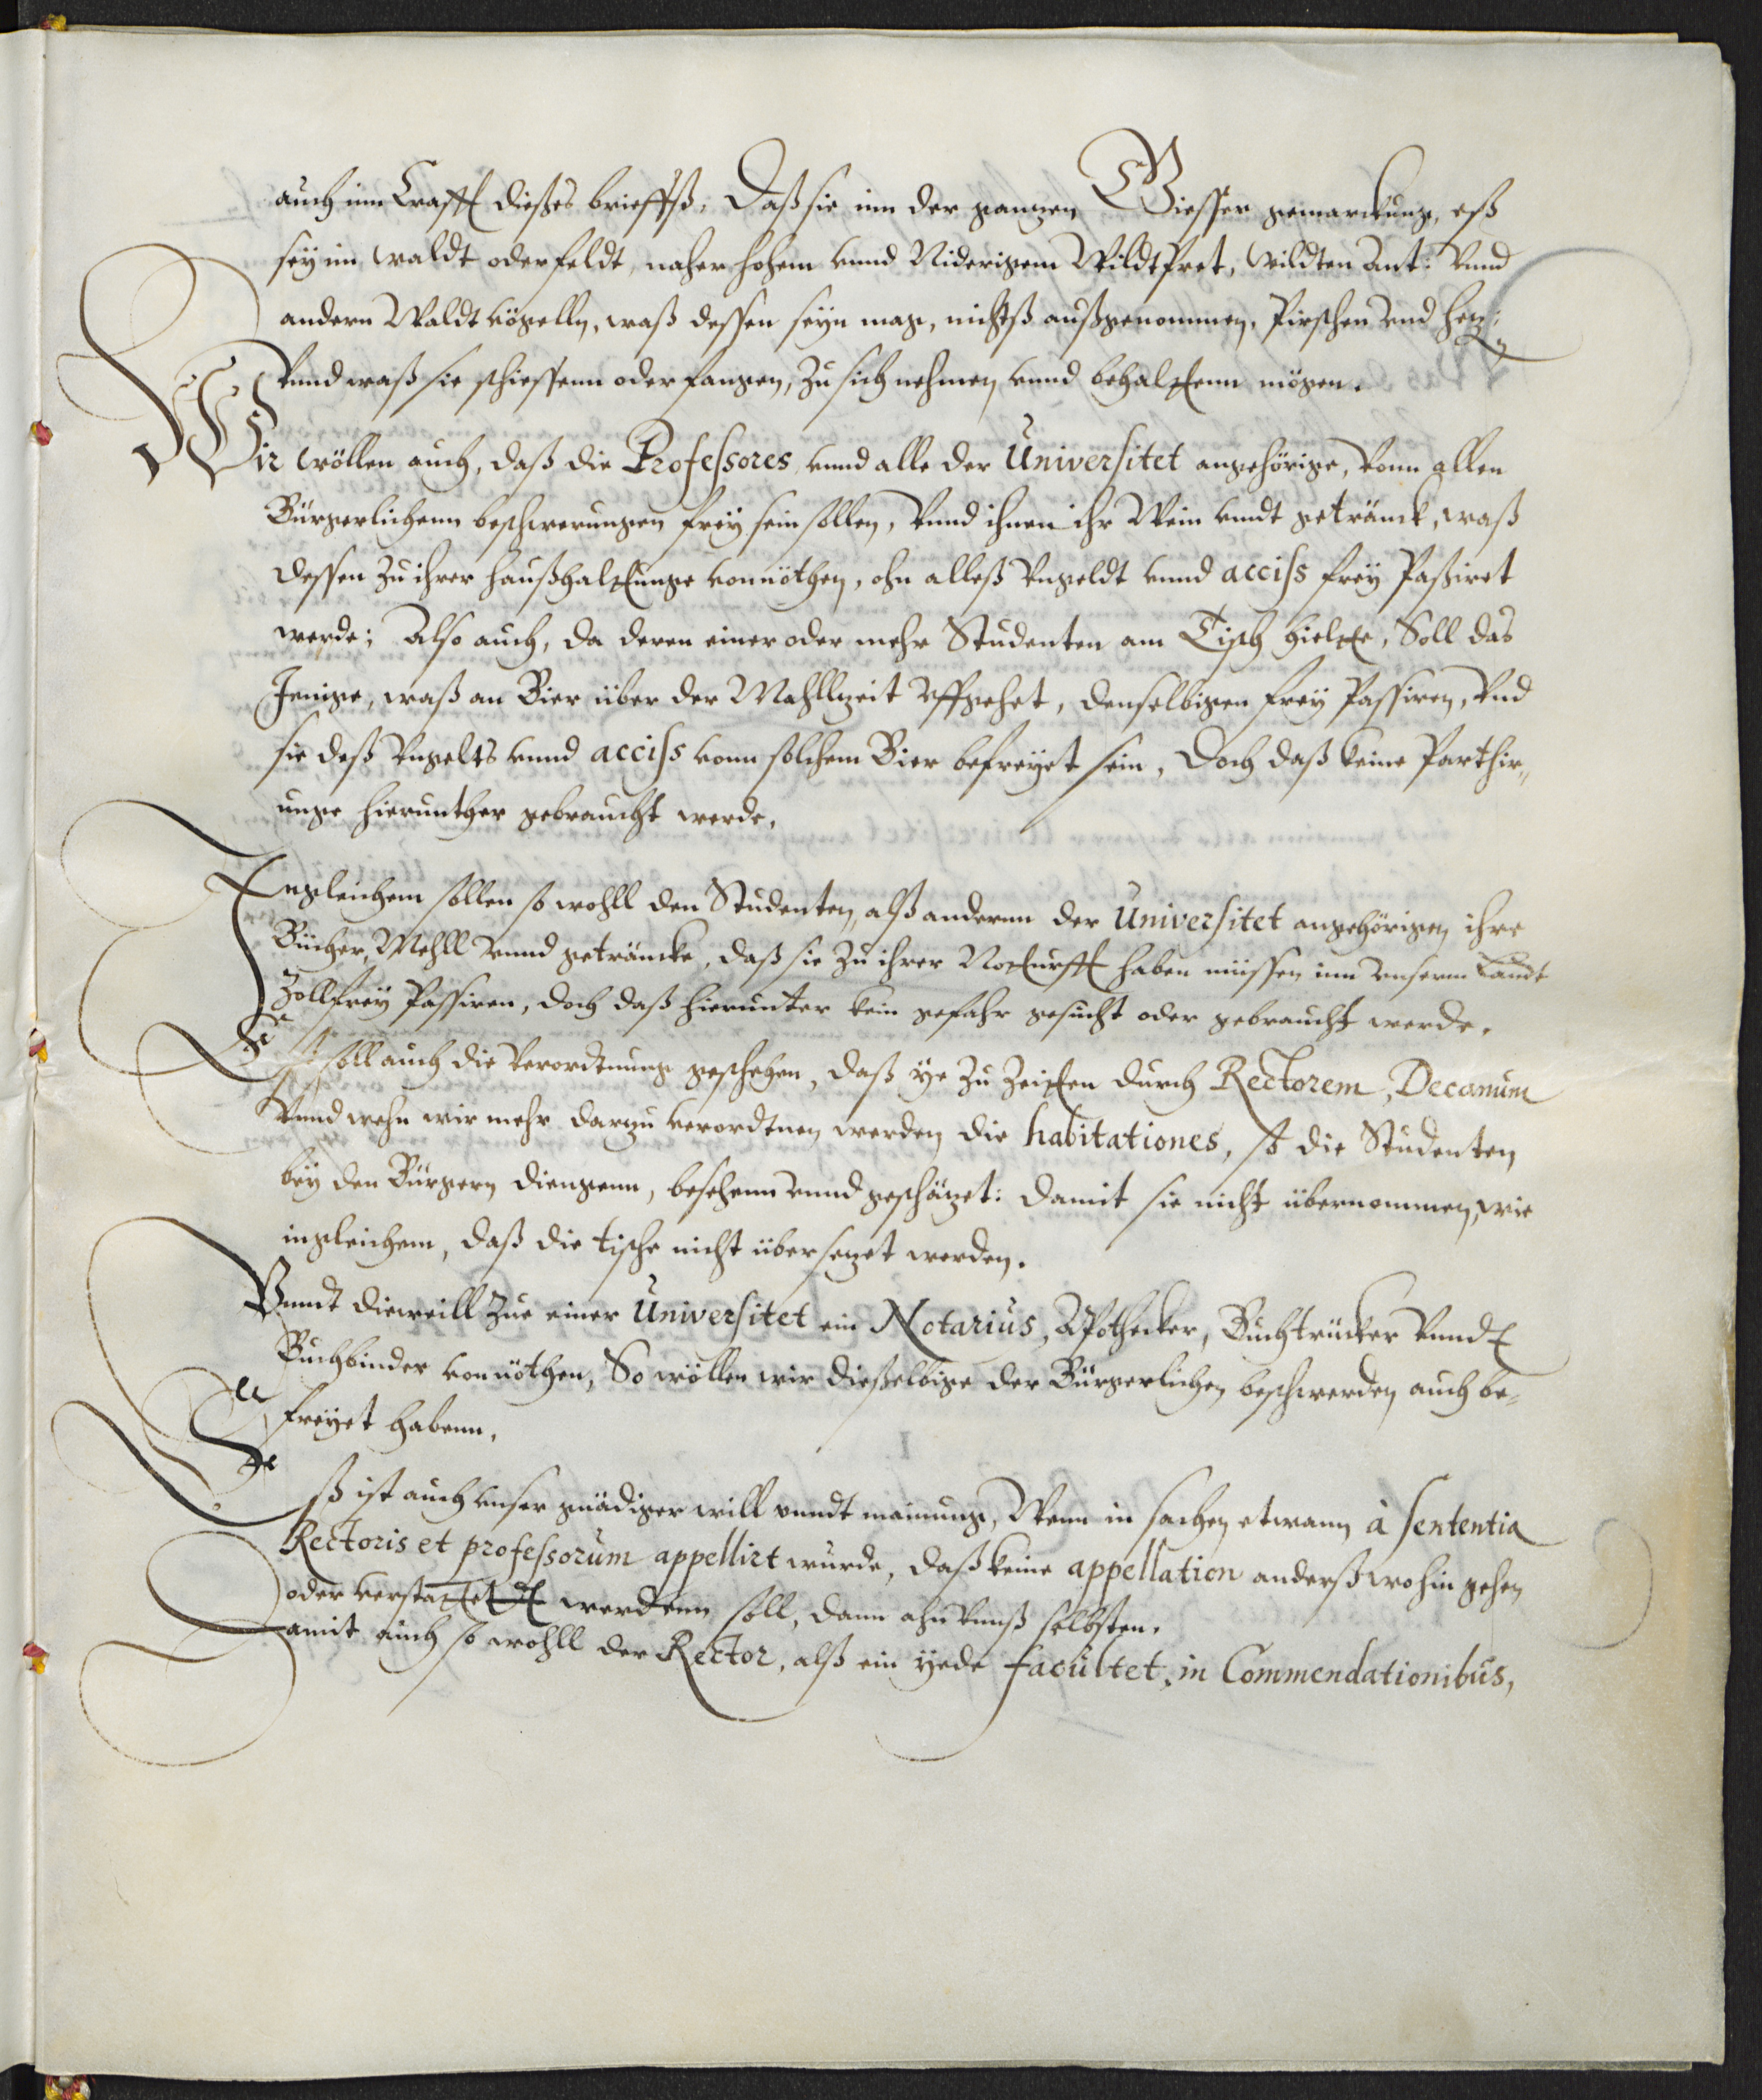 auch inn Crafft dießes brieffß, Daß sie inn der ganzen Giesser gemarckung, eß
sey im Waldt oder feldt, naher hohem vnnd Niderigem Wildtpret, Wildten Ant: Vnnd
andern Waldt vögelln, waß dessen seyn mag, nichtß außgenommen, Pirschen vnd hez:
Vnnd waß sie schiessenn oder fangen, Zu sich nehmen vnnd behaltenn mögen.
Wir wöllen auch, daß die Professores vnnd alle der Universitet angehörige, Vonn allen
Bürgerlichenn beschwerungen frey sein sollen, Vnnd ihnen ihr Wein vnndt getränck, waß
dessen Zu ihrer haußhaltunge vonnöthen, ohn alleß Vngeldt vnnd acciss frey Paßiret
werde; Also auch, da deren einer oder mehr Studenten am Tisch hielte, Soll das
Jenige, waß an Bier über der Mahllzeit Vffgehet, denselbigen frey Passiren, Vnd
sie deß Vngelts vnnd acciss vonn solchem Bier befreyet sein, Doch daß keine Parthir„
unge hierunther gebraucht werde.
Ingleichem sollen so wohll den Studenten, alß anderenn der Universitet angehörigen ihre
Bücher, Mehll vnnd geträncke, daß sie Zu ihrer Notturfft haben müssen inn vnserm Landt
Zollfrey Passiren, doch daß hierunter kein gefahr gesucht oder gebraucht werde.
Es soll auch die Verordnung geschehen, daß ye Zu Zeitten durch Rectorem, Decanum
Vnnd wehn wir mehr darzu verordtnen werden die habitationes, so die Studenten
bey den Bürgern diengenn, besehenn vnnd geschäzet: damit sie nicht übernommen, wie
ingleichem, daß die tische nicht übersezet werden.
Vnndt dieweill Zue einer Universitet ein Notarius, Apothecker, Buchtrücker Vnndt
Buchbinder vonnöthen, So wöllen wir dießelbige der Bürgerlichen beschwerden auch be=
freyet habenn.
Eß ist auch vnser gnädiger will vnndt mainung, Wenn in sachen etwann à sententia
Rectoris et professorum appellirt wurde, daß keine appellation anderßwohin gehen
oder verstattet werdenn soll, dann ahn Vnnß selbsten.
Damit auch so wohll der Rector, alß ein yede facultet, in Commendationibus,